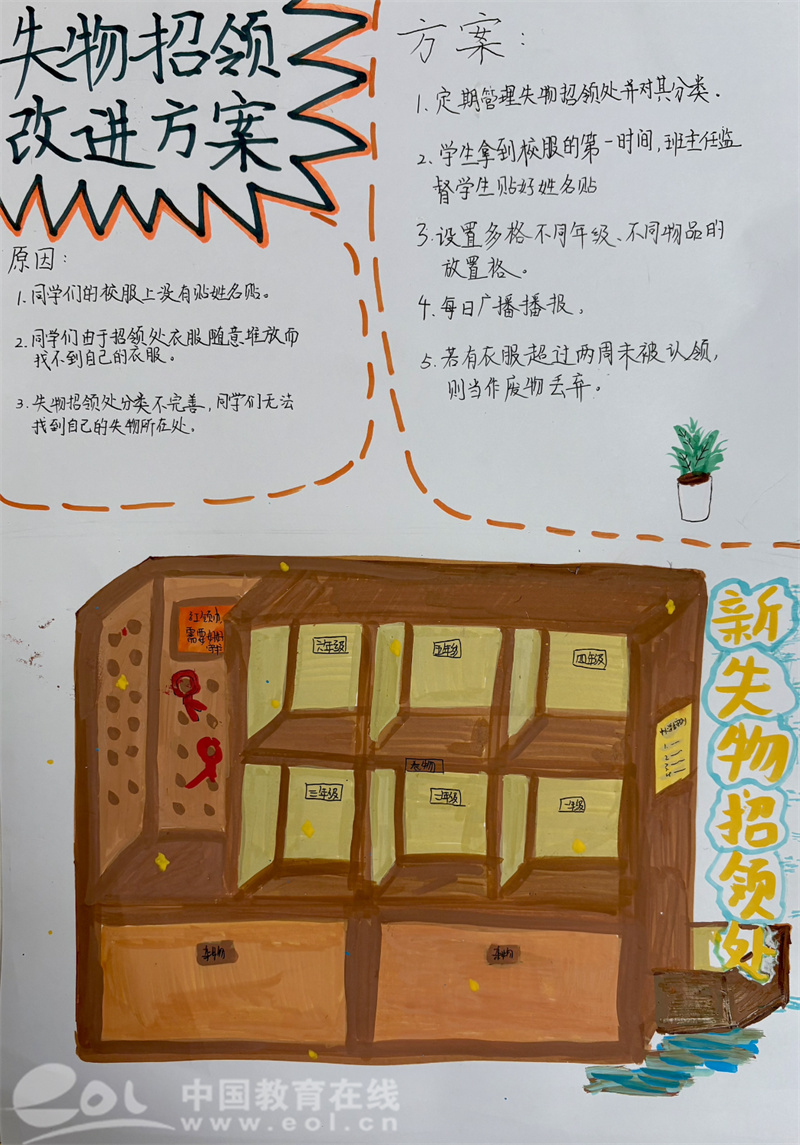 失物招领
改进方案
原因：
1.同学们的校服上没有贴姓名贴。
2.同学们由于招领处衣服随意堆放而
找不到自己的衣服。
3.失物招领处分类不完善,同学们无法
找到自己的失物所在处。
方案：
1.定期管理失物招领处并对其分类.
2.学生拿到校服的第一时间,班主任监
督学生贴好姓名贴
3.设置多格不同年级、不同物品的
放置格。
4.每日广播播报。
5.若有衣服超过两周未被认领,
则当作废物丢弃。
红领巾
需要
六年级
五年级
四年级
衣物
三年级
二年级
一年级
杂物
杂物
新失物招领处
eol 中国教育在线
www.eol.cn